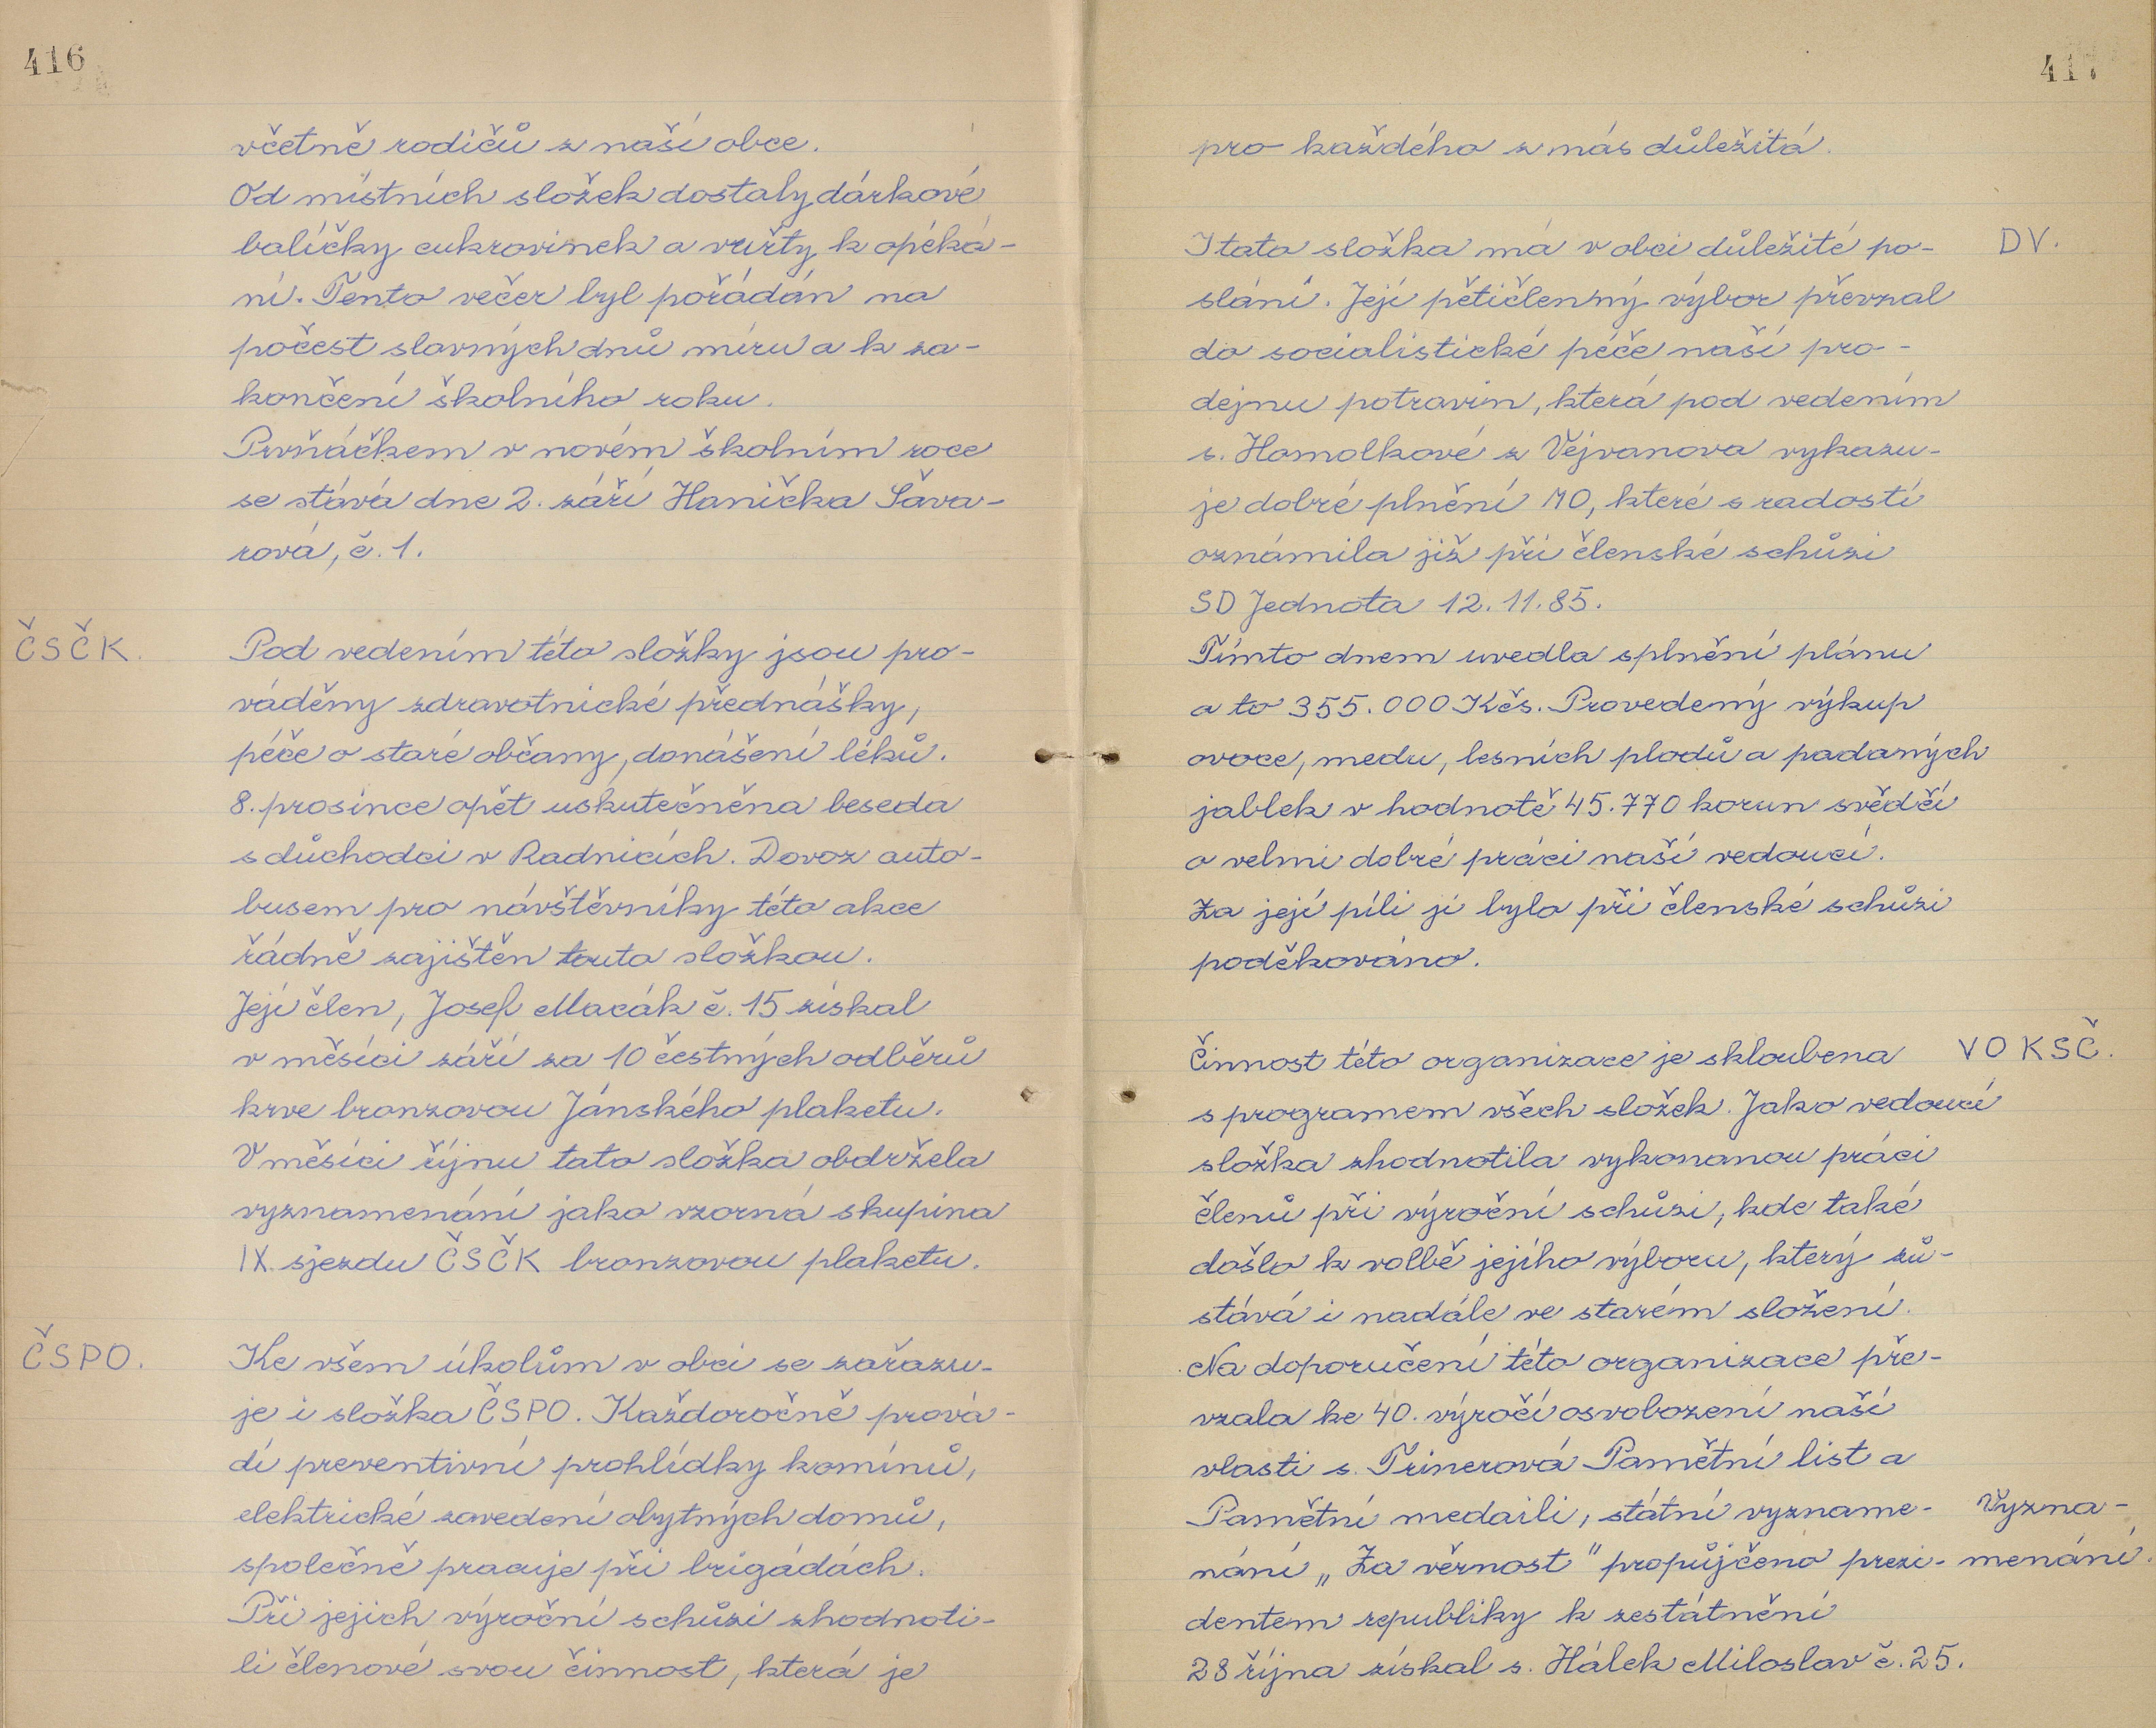 416
včetně rodičů z naší obce.
Od místních složek dostaly dárkové
balíčky cukrovinek a vuřty k opéká-
ní. Tento večer byl pořádán na
počest slavných dnů míru a k za-
končení školního roku.
Prvňáčkem v novém školním roce
se stává dne 2. září Hanička Sáva-
rová, č. 1.
ČSČK.
Pod vedením této složky jsou pro-
váděny zdravotnické přednášky,
péče o staré občany, donášení léků.
8. prosince opět uskutečněna beseda
s důchodci v Radnicích. Dovoz auto-
busem pro návštěvníky této akce
řádně zajištěn touto složkou.
Její člen, Josef Macák č. 15 získal
v měsíci září za 10 čestných odběrů
krve bronzovou Jánského plaketu.
V měsíci říjnu tato složka obdržela
vyznamenání jako vzorná skupina
IX. sjezdu ČSČK bronzovou plaketu.
ČSPO.
Ke všem úkolům v obci se zařazu-
je i složka ČSPO. Každoročně prová-
dí preventivní prohlídky komínů,
elektrické zavedení obytných domů,
společně pracuje při brigádách.
Při jejich výroční schůzi zhodnoti-
li členové svou činnost, která je
417
pro každého z nás důležitá.
I tato složka má v obci důležité po-
DV.
slání. Její pětičlenný výbor převzal
do socialistické péče naší pro-
dejnu potravin, která pod vedením
s. Homolkové z Vejvanova vykazu-
je dobré plnění MO, které s radostí
oznámila již při členské schůzi
SD Jednota 12.11.85.
Tímto dnem uvedla splnění plánu
a to 355.000 Kčs. Provedený výkup
ovoce, medu, lesních plodů a padaných
jablek v hodnotě 45.770 korun svědčí
o velmi dobré práci naší vedoucí.
Za její píli jí bylo při členské schůzi
poděkováno.
Činnost této organizace je skloubena
VO KSČ.
s programem všech složek. Jako vedoucí
složka zhodnotila vykonanou práci
členů při výroční schůzi, kde také
došlo k volbě jejího výboru, který zů-
stává i nadále ve starém složení.
Na doporučení této organizace pře-
vzala ke 40. výročí osvobození naší
vlasti s. Trinerová Pamětní list a
Pamětní medaili, státní vyzname-
Vyzna-
nání „Za věrnost" propůjčeno prezi-
menání.
dentem republiky k zestátnění
28 října získal s. Hálek Miloslav č. 25.